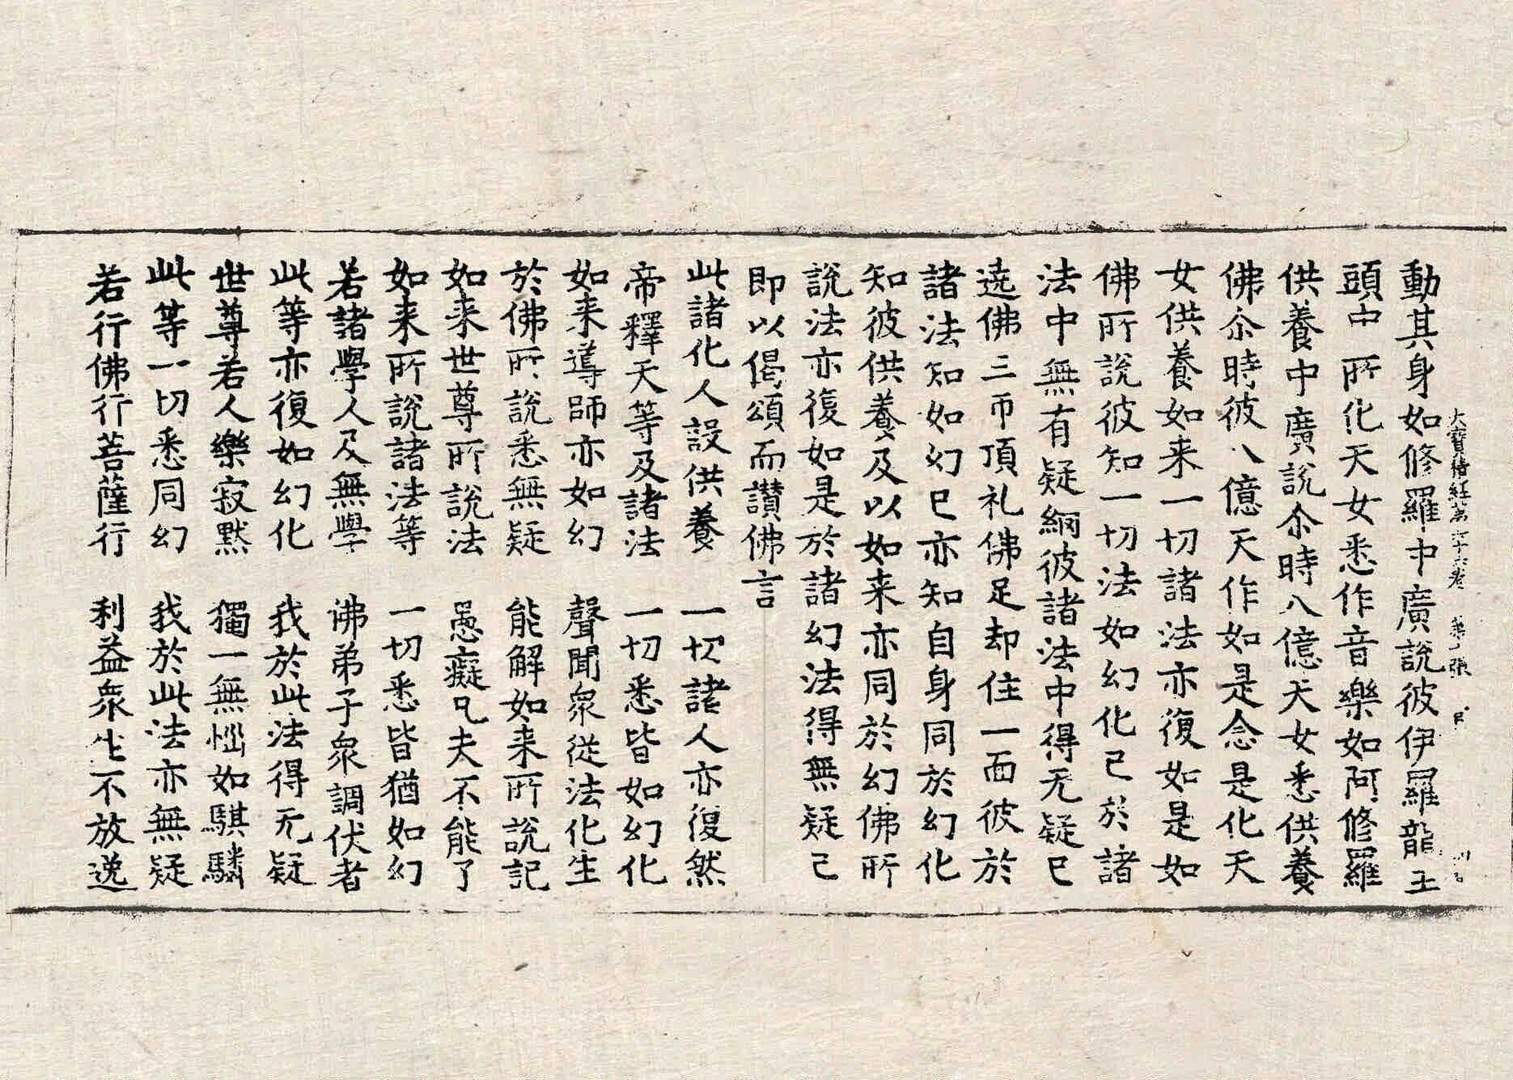 大寶積經第六十六卷 第 張
動其身如修羅中廣說彼伊羅龍王
頭中所化天女悉作音樂如阿修羅
供養中廣說尒時八億天女悉供養
佛尒時彼八億天作如是念是化天
女供養如来一切諸法亦復如是如
佛所說彼知一切法如幻化已於諸
法中無有疑網彼諸法中得无疑已
遶佛三帀頂礼佛足却住一面彼於
諸法知如幻已亦知自身同於幻化
知彼供養及以如来亦同於幻佛所
說法亦復如是於諸幻法得無疑已
即以偈頌而讃佛言
此諸化人設供養 一切諸人亦復然
帝釋天等及諸法 一切悉皆如幻化
如来導師亦如幻 聲聞衆從法化生
於佛所說悉無疑 能解如来所說記
如来世尊所說法 愚癡凡夫不能了
如来所說諸法等 一切悉皆猶如幻
若諸學人及無學 佛弟子衆調伏者
此等亦復如幻化 我於此法得无疑
世尊若人樂寂默 獨一無惱如騏驎
此等一切悉同幻 我於此法亦無疑
若行佛行菩薩行 利益衆生不放逸